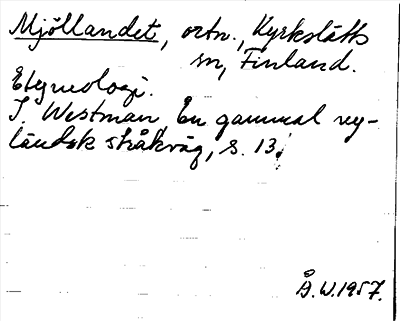 Mjöllandet, ortn., Kyrkslätts
sn, Finland.
Etymologi.
I. Westman, En gammal ny-
ländsk stråkväg, s. 13.
Å.W.1957.